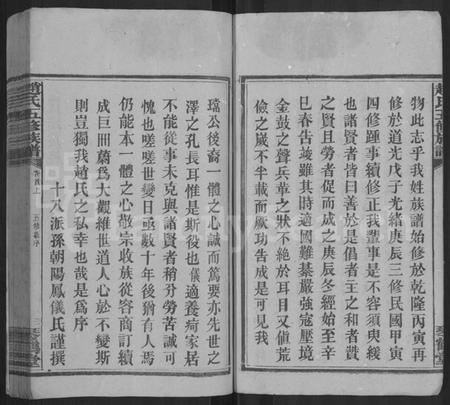 趙氏五修族譜
物此志乎我姓族譜始修於乾隆丙寅再
修於道光戊子光緒庚辰三修民國甲寅
四修踵事續修正我輩事是不容須臾緩
也諸賢者皆曰善於是倡之者主之和者贊
之賢且勞者促而成之庚辰冬經始至辛
巳春告竣雖其時適國難綦嚴強寇壓境
金鼓之聲兵革之狀不絕於耳目又值荒
儉之歲不半載而厥功告成是可見我
璫公後裔一體之心誠而篤要亦先世之
澤之孔長耳惟是斯役也儀適養疴家居
不能從事未克與諸賢者稍分勞苦誠可
愧也嗟嗟世變日亟數十年後猶有人焉
仍能本一體之心敬宗收族從容商訂續
成巨冊蔚為大觀維世道人心於不變斯
則豈獨我趙氏之私幸也哉是為序
十八派孫朝陽鳳儀氏謹撰
趙氏五修族譜
卷首上
五修 序
琴鶴堂